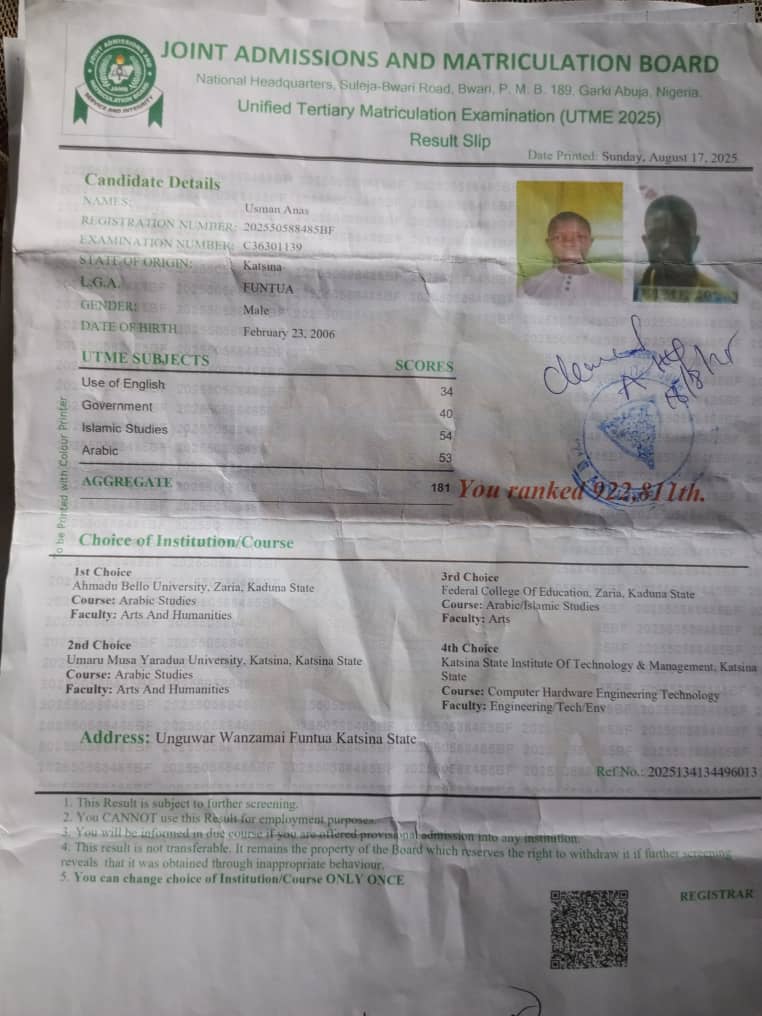 JOINT ADMISSIONS AND MATRICULATION BOARD
National Headquarters, Suleja-Bwari Road, Bwari, P. M. B. 189, Garki Abuja, Nigeria.
Unified Tertiary Matriculation Examination (UTME 2025)
Result Slip
Date Printed: Sunday, August 17, 2025
Candidate Details
NAMES: Usman Anas
REGISTRATION NUMBER: 202550588485BF
EXAMINATION NUMBER: C36301139
STATE OF ORIGIN: Katsina
L.G.A. FUNTUA
GENDER: Male
DATE OF BIRTH February 23, 2006
UTME SUBJECTS SCORES
Use of English 34
Government 40
Islamic Studies 54
Arabic 53
AGGREGATE 181 You ranked 922,811th.
To be Printed with Colour Printer
Choice of Institution/Course
1st Choice
Ahmadu Bello University, Zaria, Kaduna State
Course: Arabic Studies
Faculty: Arts And Humanities
2nd Choice
Umaru Musa Yaradua University, Katsina, Katsina State
Course: Arabic Studies
Faculty: Arts And Humanities
3rd Choice
Federal College Of Education, Zaria, Kaduna State
Course: Arabic/Islamic Studies
Faculty: Arts
4th Choice
Katsina State Institute Of Technology & Management, Katsina
State
Course: Computer Hardware Engineering Technology
Faculty: Engineering/Tech/Env
Address: Unguwar Wanzamai Funtua Katsina State
Ref No.: 2025134134496013
1. This Result is subject to further screening.
2. You CANNOT use this Result for employment purposes.
3. You will be informed in due course if you are offered provisional admission into any institution.
4. This result is not transferable. It remains the property of the Board which reserves the right to withdraw it if further screening
reveals that it was obtained through inappropriate behaviour.
5. You can change choice of Institution/Course ONLY ONCE
REGISTRAR